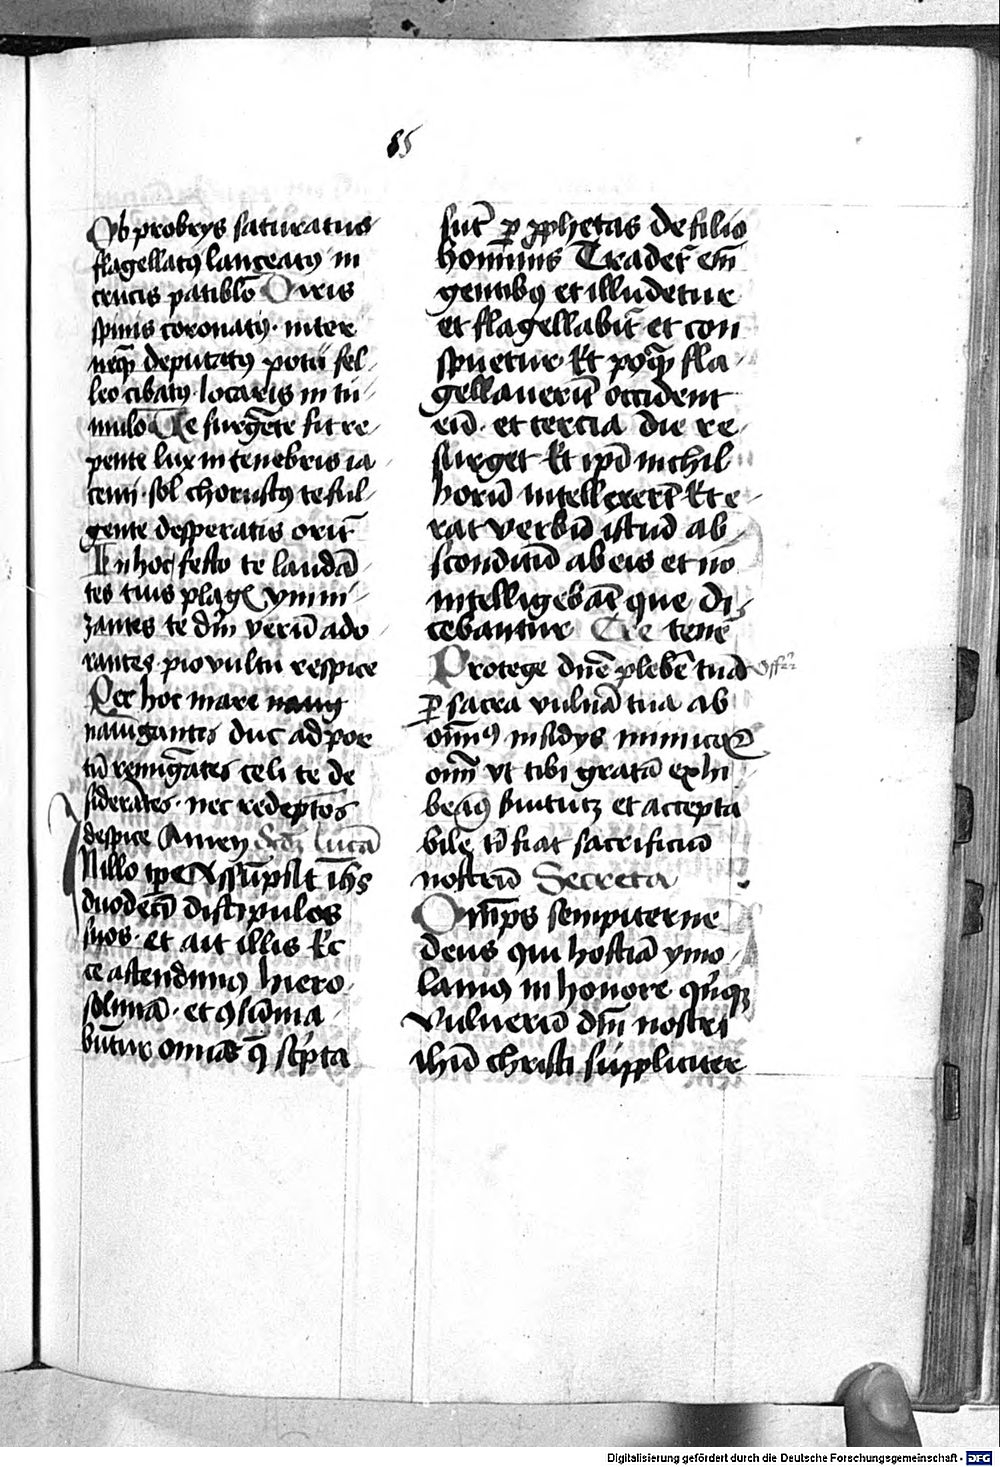 85
Ob probrys saturatus
flagellatꝯ lanceatꝯ in
crucis patiblo͞ Oreis
spinis coronatꝯ · inter
neqꝫ deputatꝯ potu͞ fel
leo cibatꝯ · locaris in tu
mulo Te surge͞te fit re
pente lux in tenebris ia
centi · sol choruscꝯ te ful
gente desperatis orit᷑
In hoc festo te lauda͞
tes tuis plagꝭ ymni
zantes te dn͞m veru͞ ado
rantes · pio vultu respice
Per hoc mare naug
nauigantes duc ad por
tu͞ remiga͞tes celi te de
sidera͞tes · nec redempto͞s
despice Amen Scdꝫ Luca͞
In illo tp͞e Assu͞psit ih͞s
duodeci͞ discipulos
suos · et ait illis Ec
ce ascendimꝯ hiero
solima͞ · et ꝯsu͞ma
bu͞tur omia͞ q͞ sc͛pta
su͞t ꝑ ꝓphetas de filio
homi͞nis Tradet᷑ em͞
gentibꝯ et illudetur
et flagellabit᷑ et con
spuetur Et postqꝫ fla
gellaueru͞t occident
eu͞ · et tercia die re
surget Et ip͞i nichil
horu͞ intellexeru͞t Et e
rat verbu͞ istud ab
sconditu͞ ab eis et no͞
intelligeba͞t que di
cebantur Cre tene͞
Protege dn͞e plebe͞ tua͞ Off᷑r͞
ꝑ sacra vulna͞ tua ab
om͞ibꝯ insidys inimicoꝝ
om͞ vt tibi grata͞ exhi
beamꝯ s͛uitutꝫ et accepta
bile t͛ fiat sacrificiu͞
nostru͞ Secreta
Om͞ps sempiterne
deus qui hostia͞ ymo
lamꝯ in honore qui͞qꝫ
vulneru͞ dn͞i nostri
ihu͞ christi suppliciter
Digitalisierung gefördert durch die Deutsche Forschungsgemeinschaft - DFG